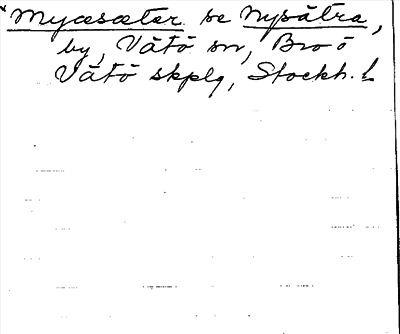 * Mycesæter se Nysätra,
by, Vätö sn, Bro o
Vätö skplg, Stockh. L